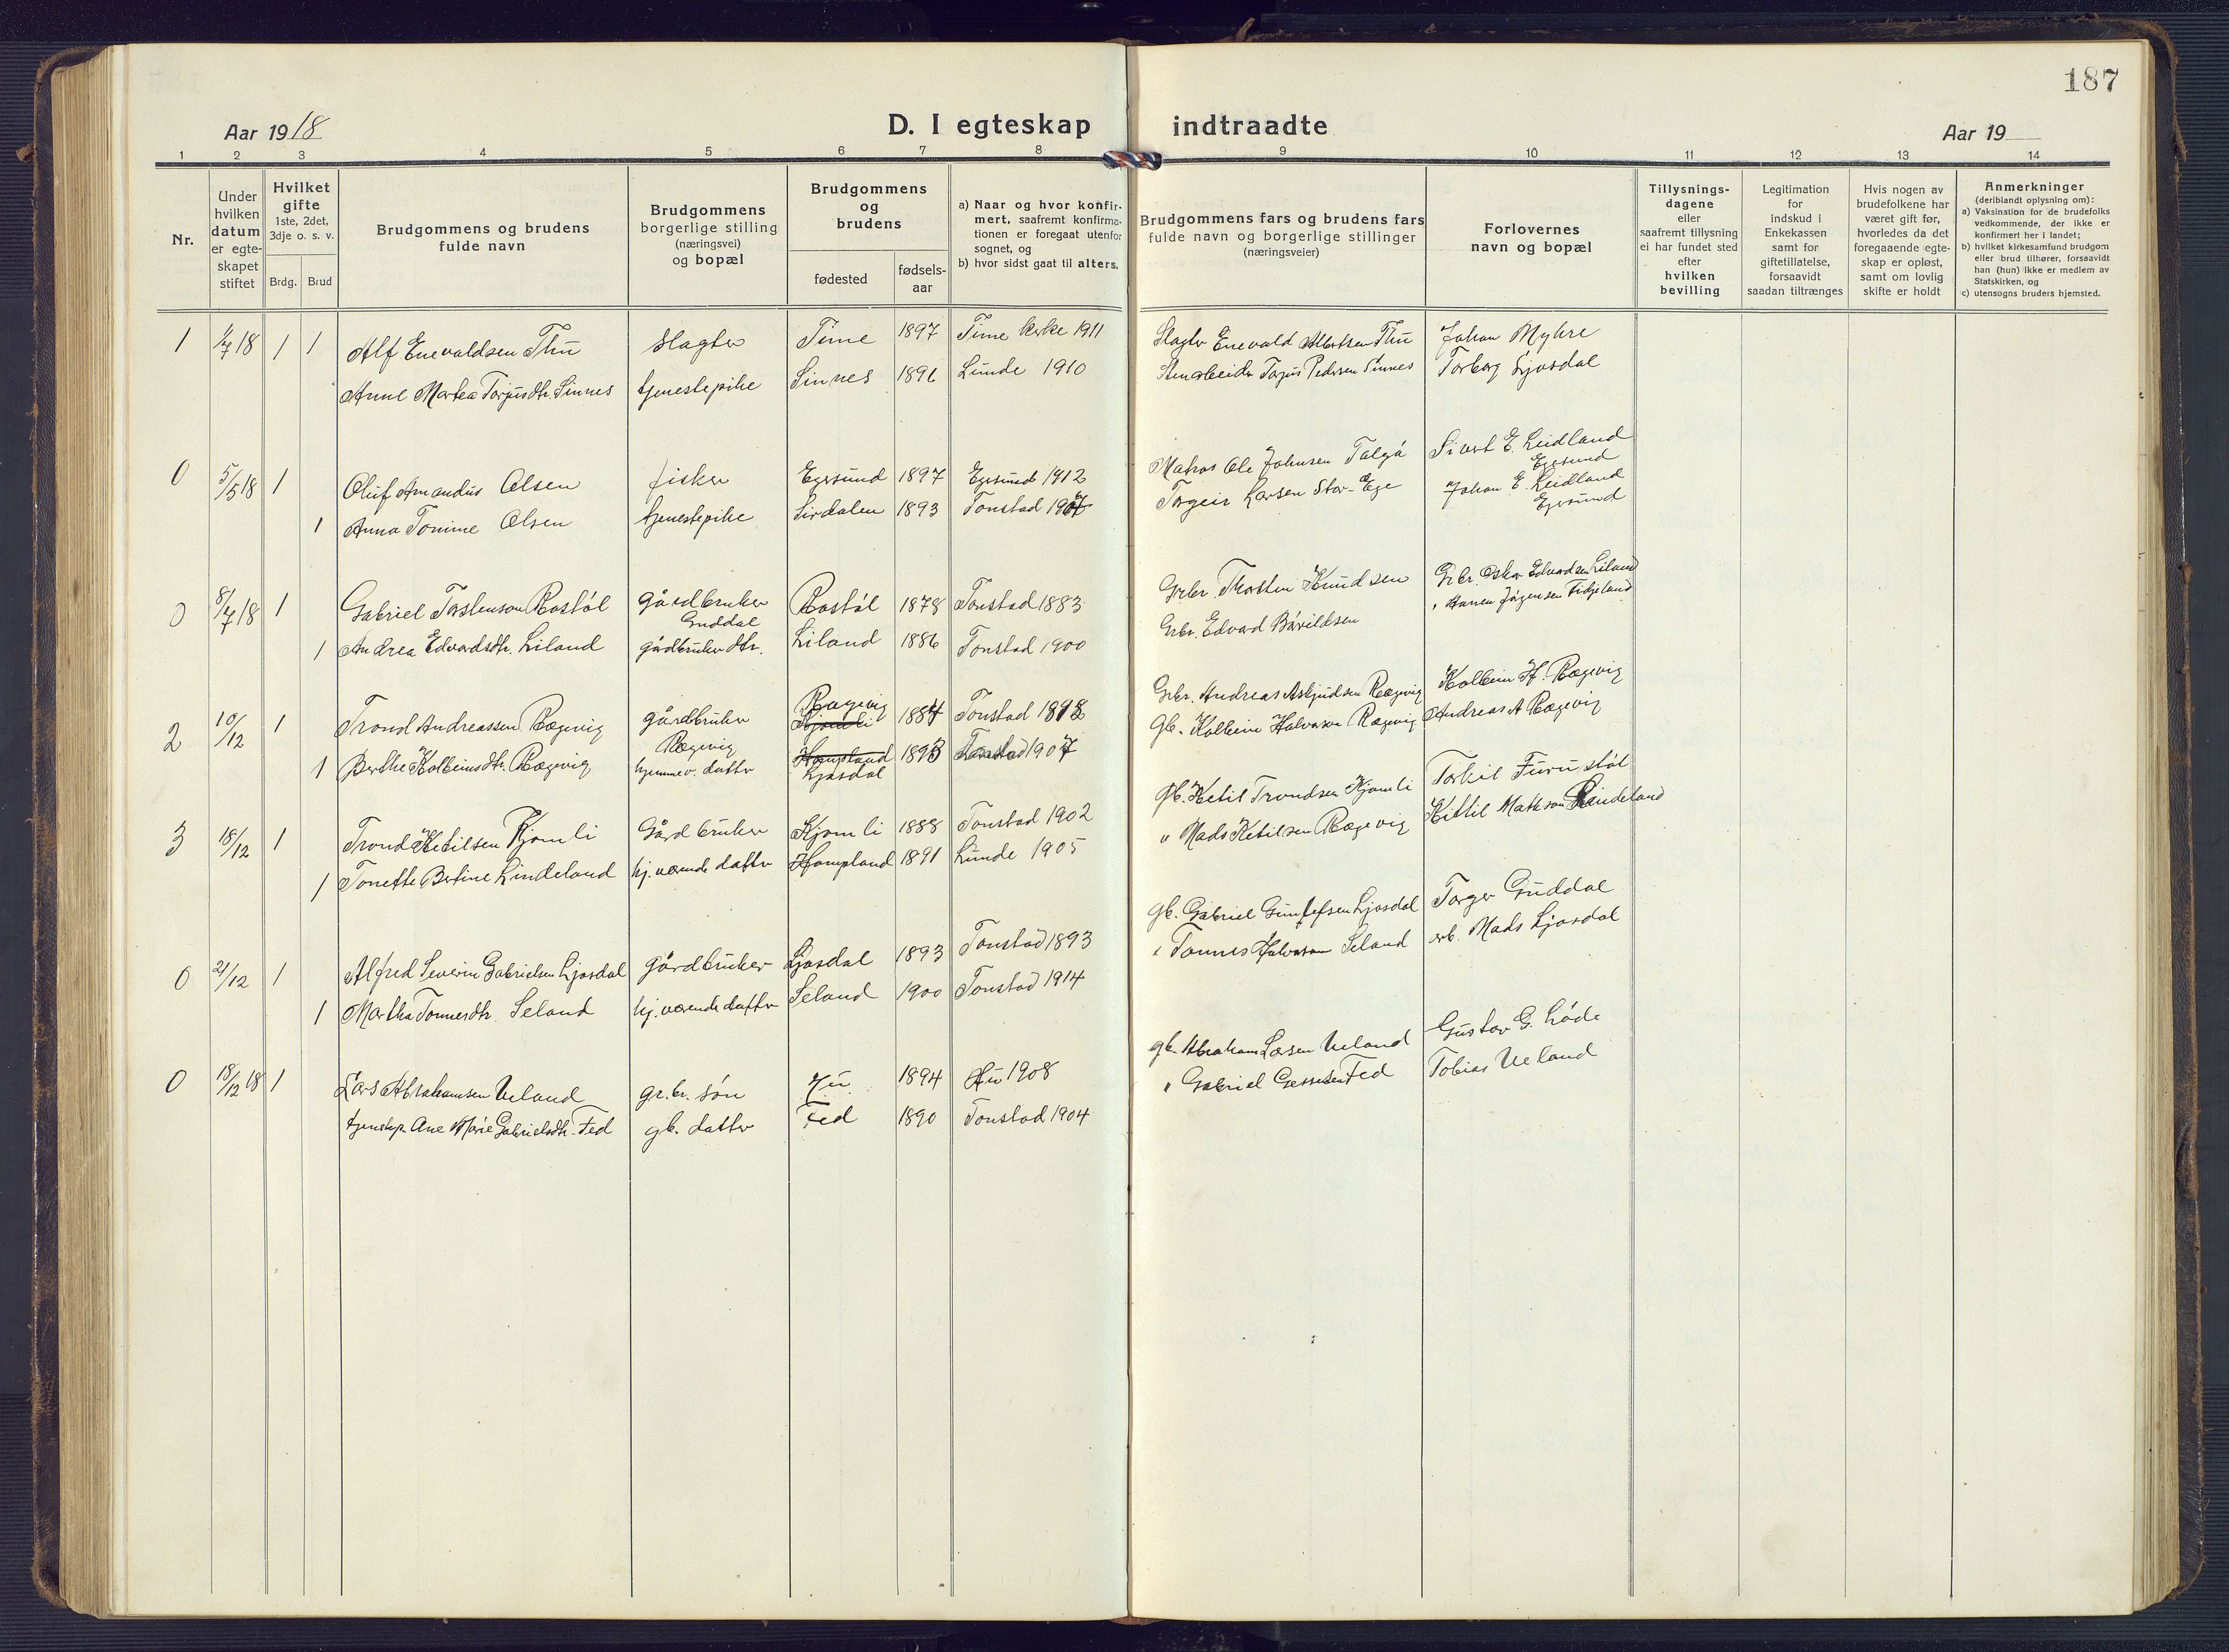 187
Aar 1918
D. I egteskap indtraadte
Aar 19
1 2 3 4 5 6 7 8 9 10 11 12 13 14
Nr.
Under
hvilken
datum
er egte-
skapet
stiftet
Hvilket
gifte
1ste, 2det,
3dje o. s. v.
Brdg. Brud
Brudgommens og brudens
fulde navn
Brudgommens
borgerlige stilling
(næringsvei)
og bopæl
Brudgommens
og
brudens
fødested
fødsels-
aar
a) Naar og hvor konfir-
mert, saafremt konfirma-
tionen er foregaat utenfor
sognet, og
b) hvor sidst gaat til alters.
Brudgommens fars og brudens fars
fulde navn og borgerlige stillinger
(næringsveier)
Forlovernes
navn og bopæl
Tillysnings-
dagene
eller
saafremt tillysning
ei har fundet sted
efter
hvilken
bevilling
Legitimation
for
indskud i
Enkekassen
samt for
giftetillatelse,
forsaavidt
saadan tiltrænges
Hvis nogen av
brudefolkene har
været gift før,
hvorledes da det
foregaaende egte-
skap er opløst,
samt om lovlig
skifte er holdt
Anmerkninger
(deriblandt oplysning om):
a) Vaksination for de brudefolks
vedkommende, der ikke er
konfirmert her i landet;
b) hvilket kirkesamfund brudgom
eller brud tilhører, forsaavidt
han (hun) ikke er medlem av
Statskirken, og
c) utensogns bruders hjemsted.
1 1 1 Alf Enevaldsen Thu Slagter Time 1897 Time kirke 1911 Slagter Enevald Albertsen Thu Johan Myhre
Anne Martea Torjusdtr. Sinnes tjenestepike Sinnes 1896 Lunde 1910 Torjus Pedersen Sinnes Torberg Ljosdal
0 5/5 18 1 Oluf Amandus Olsen fisker Egersund 1897 Egersund 1912 Matros Ole Johnsen Talgå Sivert E. Leidland
Egersund
1 Anna Tomine Olsen tjenestepike Sirdalen 1893 Tonstad 1907 Torgeir Larsen Stor-Ege Johan E. Leidland
Egersund
0 8/7 18 1 Gabriel Tostenson Rostøl Gårdbruker Rostøl 1878 Tonstad 1883 Grbr. Thosten Knudsen Grbr. Oskar Edvardsen Liland
Guddal
1 Andrea Edvardsdtr. Liland gårdbruker dtr. Liland 1886 Tonstad 1900 Grbr. Edvard Bårildsen Jørgensen Fidjeland
2 10/12 1 Trond Andreassen Rægevig gårdbruker Rægevig Kjomli 1884 Tonstad 1898 Grbr. Andreas Askjudsen Rægevig Kolbein H. Rægevig
Rægevig
1 Berthe Kolbeinsdtr. Rægevig hjemmev. datter Hompland Ljosdal 1893 Tonstad 1907 Gb. Kolbein Halvorson Rægevig Andreas A Rægevig
3 18/12 1 Trond Ketilsen Kjomli Gårdbruker Kjomli 1888 Tonstad 1902 gb. Ketil Trondsen Kjomli Torkil Furustøl
1 Tonette Bertine Lindeland hj. værende datter Hompland 1891 Lunde 1905 " Mads Ketilsen Rægevig Kittil Mathson Lindeland
0 21/12 1 Alfred Severin Gabrielsen Ljosdal gårdbruker Ljosdal 1893 Tonstad 1893 gb. Gabriel Gunlefsen Ljosdal Torger Guddal
1 Martha Tonnesdtr. Seland hj. værende datter Seland 1900 Tonstad 1914 " Tonnes Halvorson Seland Mads Ljosdal
0 18/12 18 1 Lars Abrahamsen Ueland gr.br. søn Hu 1894 Hu 1908 gb. Abraham Larsen Ueland Gustav G. Løde
tjenestep. Ane Marie Gabrielsdtr. Fed gb. datter Fed 1890 Tonstad 1904 " Gabriel Fed Tobias Ueland